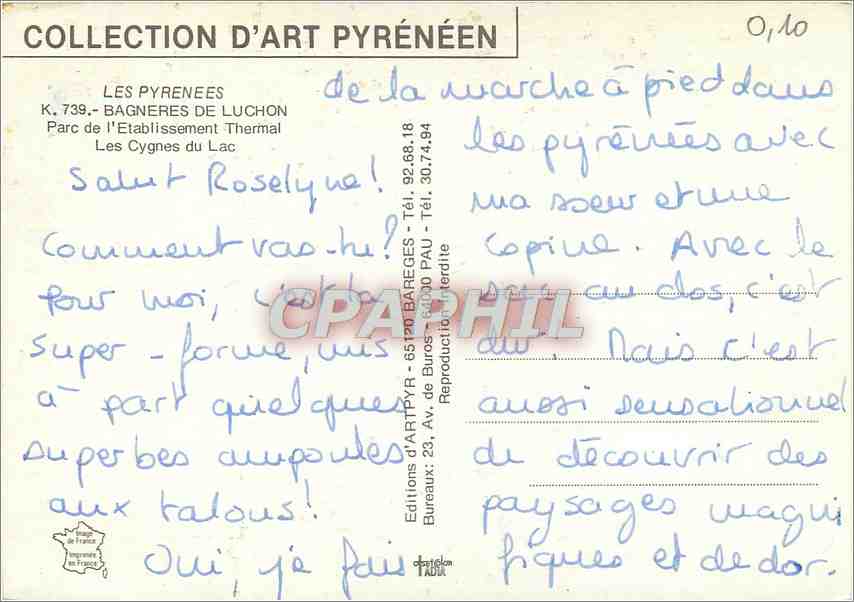 COLLECTION D'ART PYRÉNÉEN
0,10
LES PYRENEES
K. 739.- BAGNERES DE LUCHON
Parc de l'Etablissement Thermal
Les Cygnes du Lac
Salut Roselyne!
Comment vas-tu?
Pour moi, c'est la
super-forme, mis
à part quelques
superbes ampoules
aux talons!
Oui, je fais
de la marche à pied dans
les pyrénées avec
ma soeur et une
copine. Avec le
sac au dos, c'est
dur! Mais c'est
aussi sensationnel
de découvrir des
paysages magni
fiques et de dor.
Editions d'ARTPYR - 65120 BAREGES - Tél. 92.68.18
Bureaux: 23, Av. de Buros - 64000 PAU - Tél. 30.74.94
Reproduction Interdite
CPAPHIL
Image
de France
Imprimée
en France